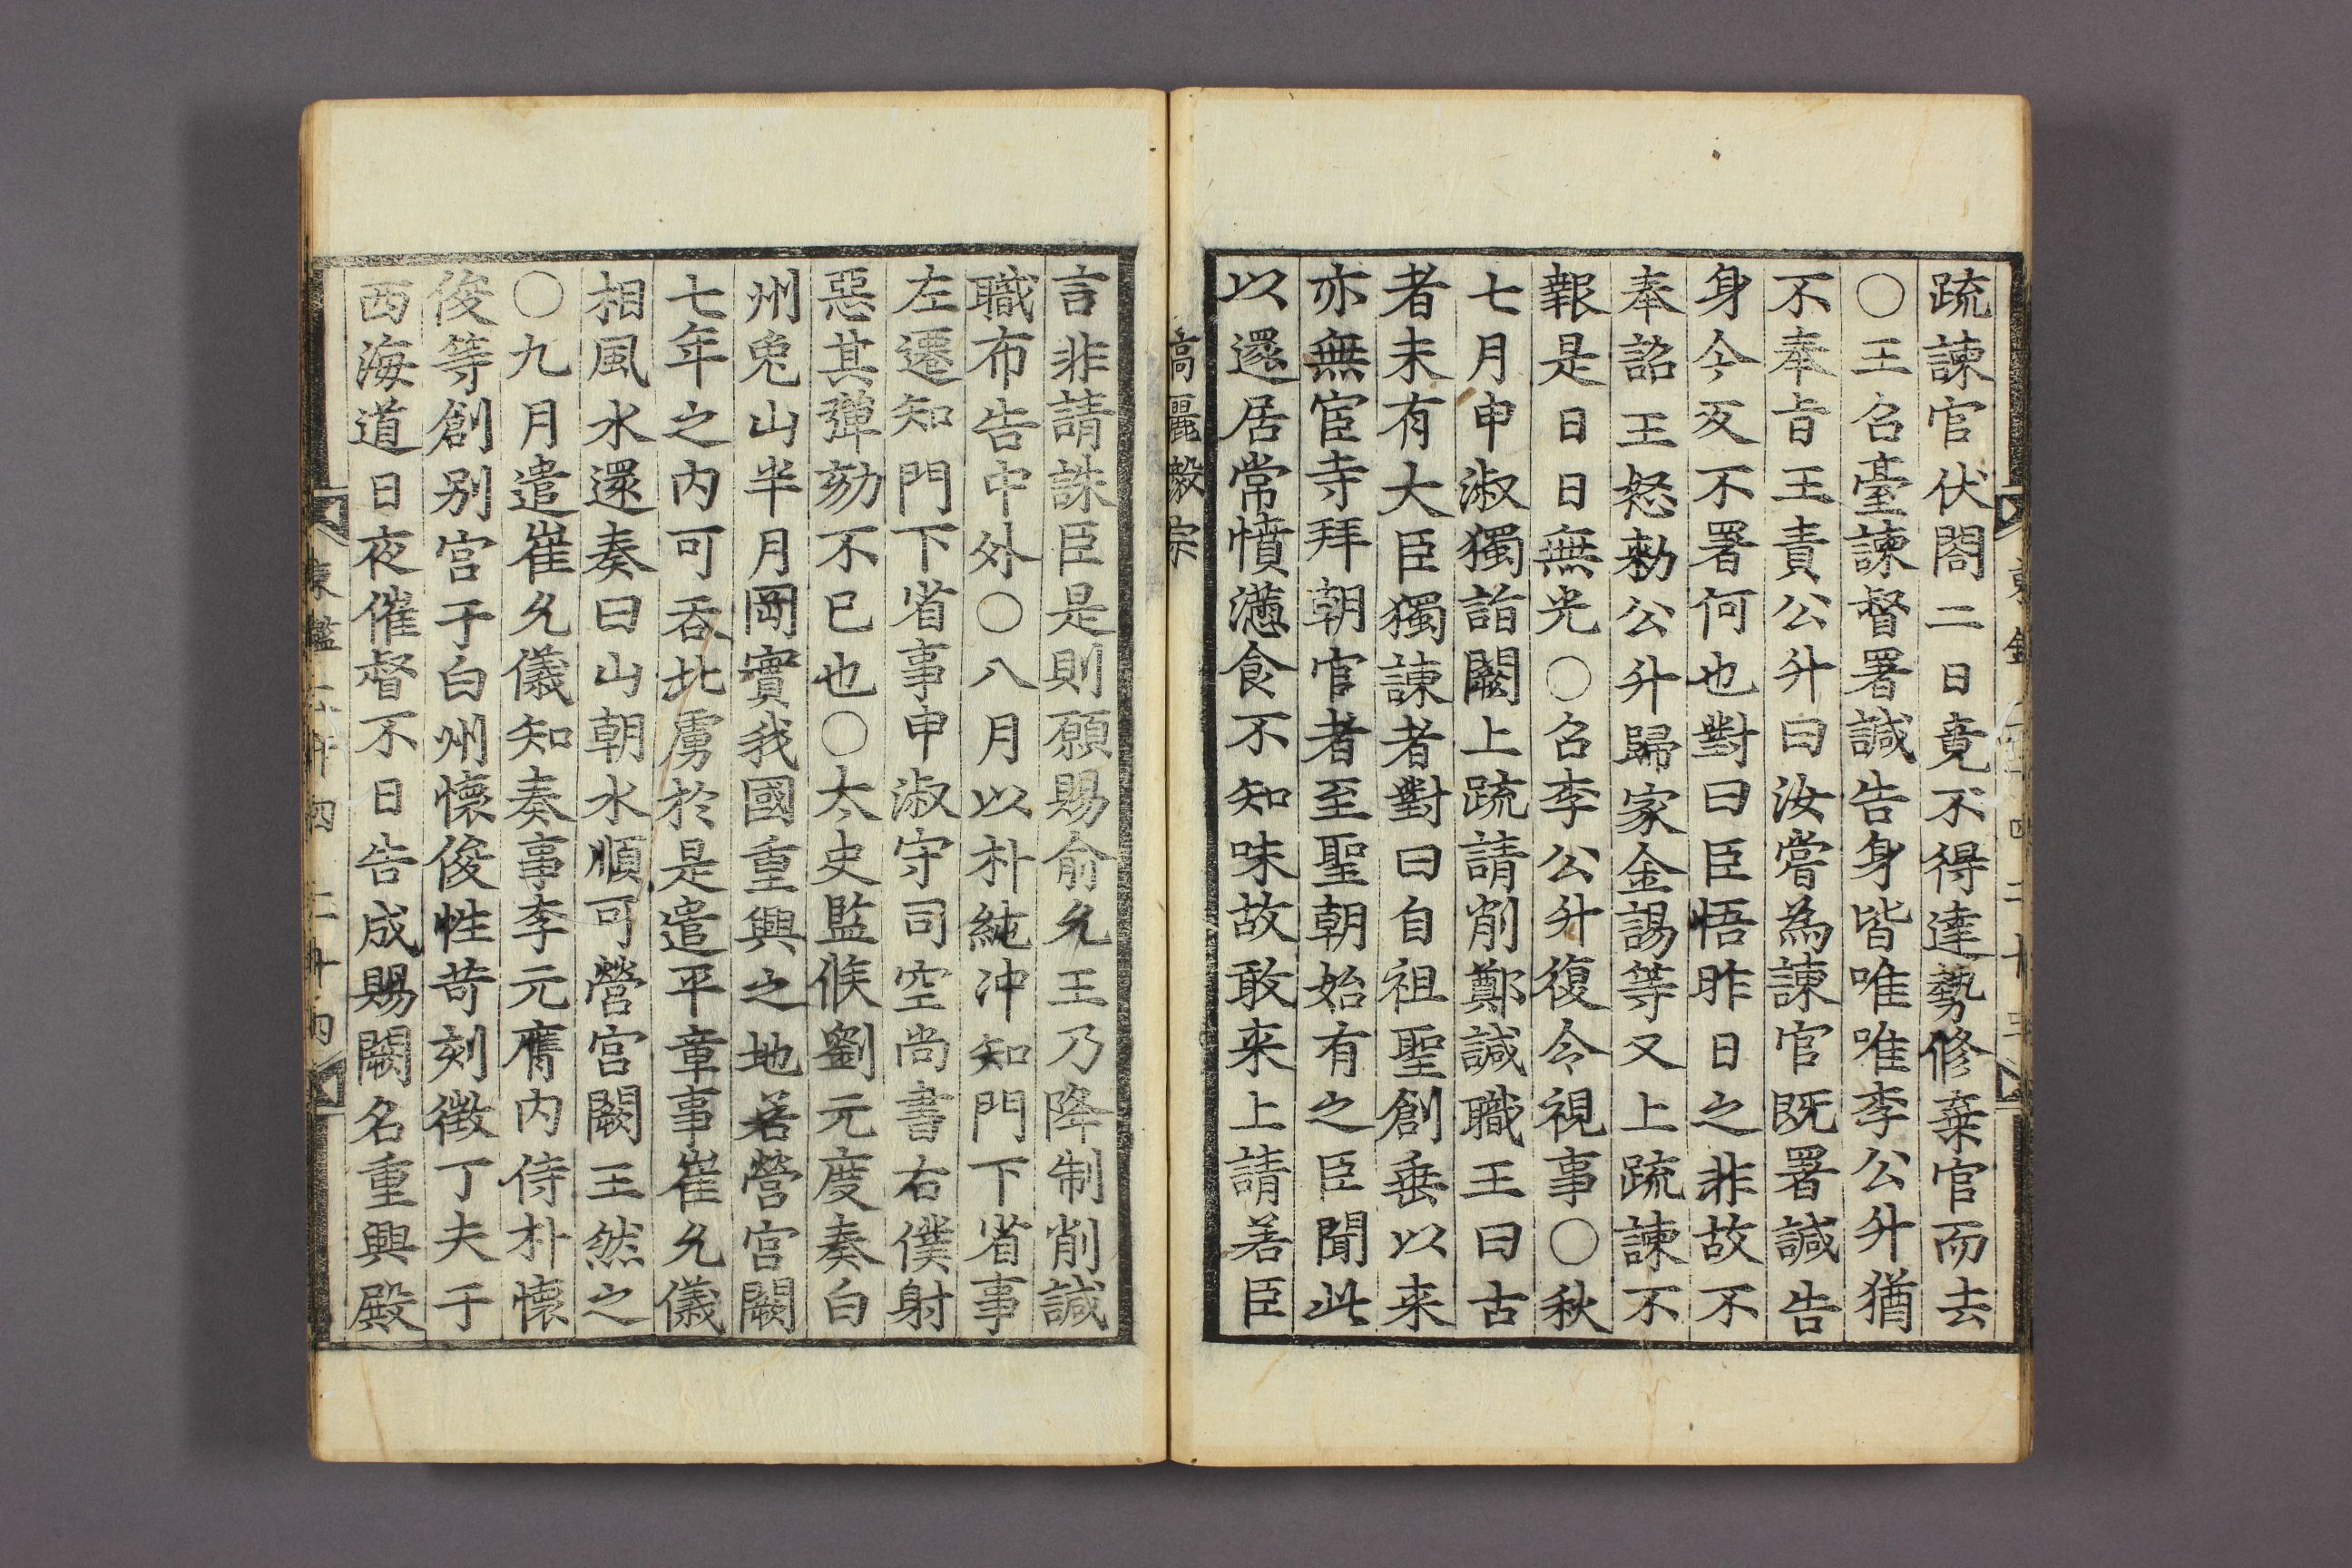 疏諫官伏閤二日竟不得達勢修棄官而去
○王召臺諫督署諴告身皆唯唯李公升猶
不奉旨王責公升曰汝嘗為諫官既署諴告
身今反不署何也對曰臣悟昨日之非故不
奉詔王怒勑公升歸家金諹等又上疏諫不
報是日日無光○召李公升復令視事○秋
七月申淑獨詣闕上疏請削鄭諴職王曰古
者未有大臣獨諫者對曰自祖聖創垂以来
亦無宦寺拜朝官者至聖朝始有之臣聞此
以還居常憤懣食不知味故敢来上請若臣
高麗毅宗
言非請誅臣是則願賜俞允王乃降制削諴
職布告中外○八月以朴純冲知門下省事
左遷知門下省事申淑守司空尚書右僕射
惡其彈劾不已也○太史監候劉元度奏白
州兎山半月岡實我國重興之地若營宮闕
七年之內可吞北虜於是遣平章事崔允儀
相風水還奏曰山朝水順可營宮闕王然之
○九月遣崔允儀知奏事李元膺內侍朴懷
俊等創别宮于白州懷俊性苛刻徴丁夫于
西海道日夜催督不日告成賜闕名重興殿